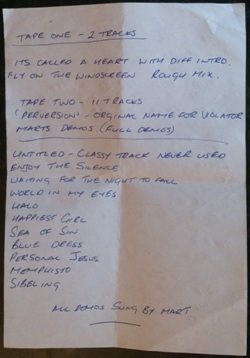 TAPE ONE - 2 TRACKS
ITS CALLED A HEART WITH DIFF INTRO.
FLY ON THE WINDSCREEN ROUGH MIX.
TAPE TWO - 11 TRACKS
'PERVERSION' - ORGINAL NAME FOR VIOLATOR
MARTS DEMOS (FULL DEMOS)
UNTITLED - CLASSY TRACK NEVER USED
ENJOY THE SILENCE
WAITING FOR THE NIGHT TO FALL
WORLD IN MY EYES
HALO
HAPPIEST GIRL
SEA OF SIN
BLUE DRESS
PERSONAL JESUS
MEMPHISTO
SIBELING
ALL DEMOS SUNG BY MART